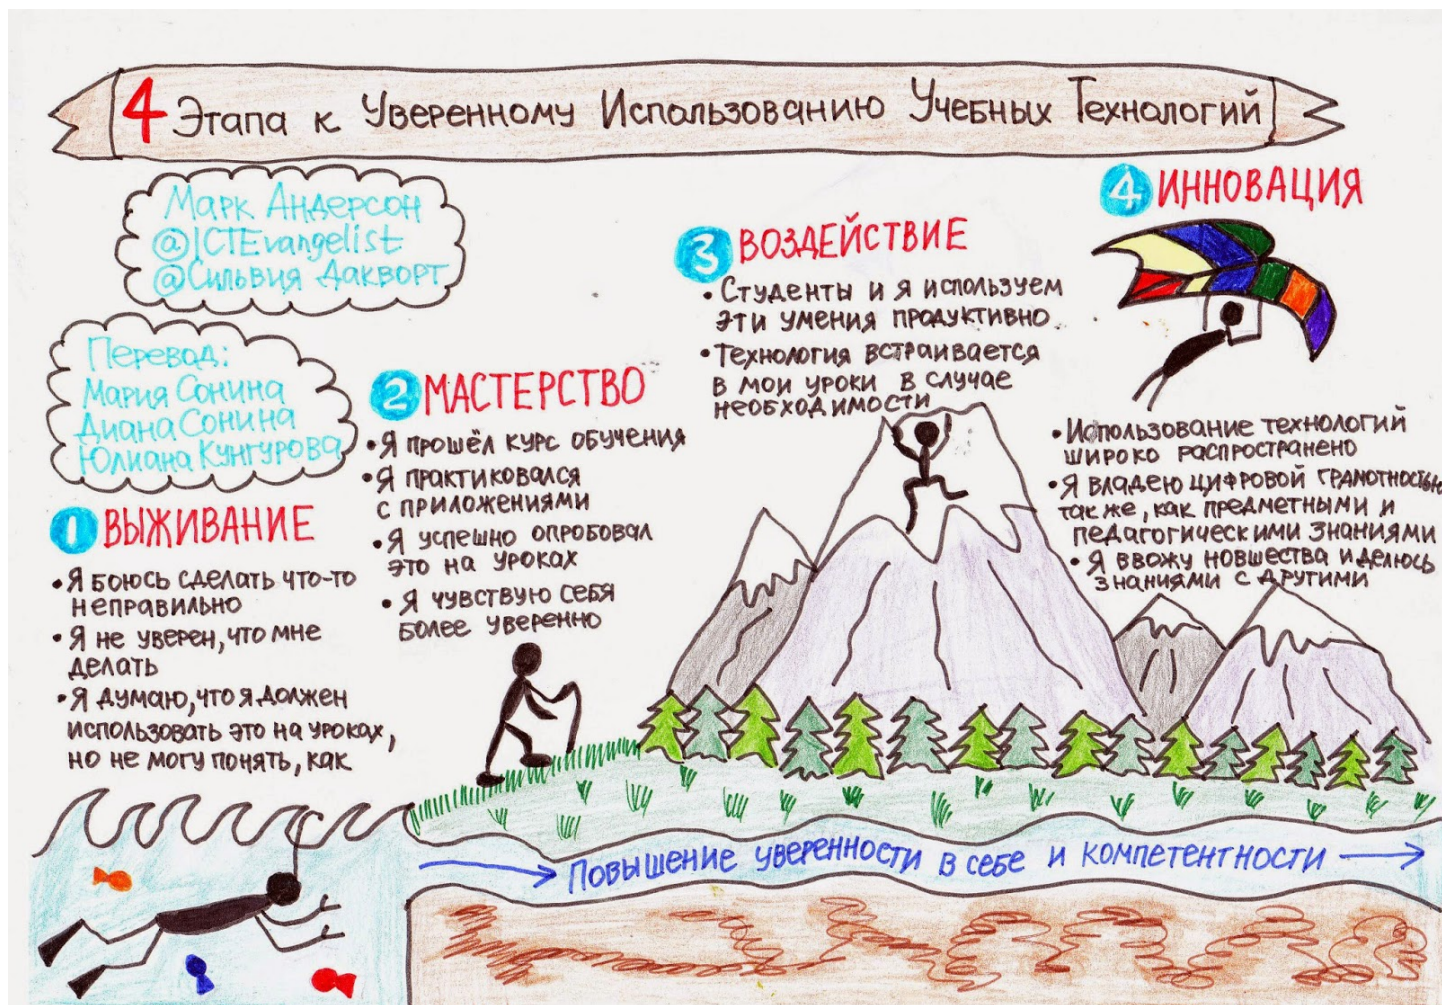 4 Этапа к Уверенному Использованию Учебных Технологий
Марк Андерсон
@ICTEvangelist
@Сильвия Дакворт
Перевод:
Мария Сонина
Диана Сонина
Юлиана Кунгурова
1 ВЫЖИВАНИЕ
• Я боюсь сделать что-то
неправильно
• Я не уверен, что мне
делать
• Я думаю, что я должен
использовать это на уроках,
но не могу понять, как
2 МАСТЕРСТВО
• Я прошёл курс обучения
• Я практиковался
с приложениями
• Я успешно опробовал
это на уроках
• Я чувствую себя
более уверенно
3 ВОЗДЕЙСТВИЕ
• Студенты и я используем
эти умения продуктивно
• Технология встраивается
в мои уроки в случае
необходимости
4 ИННОВАЦИЯ
• Использование технологий
широко распространено
• Я владею цифровой грамотностью
также, как предметными и
педагогическими знаниями
• Я ввожу новшества и делюсь
знаниями с другими
Повышение уверенности в себе и компетентности